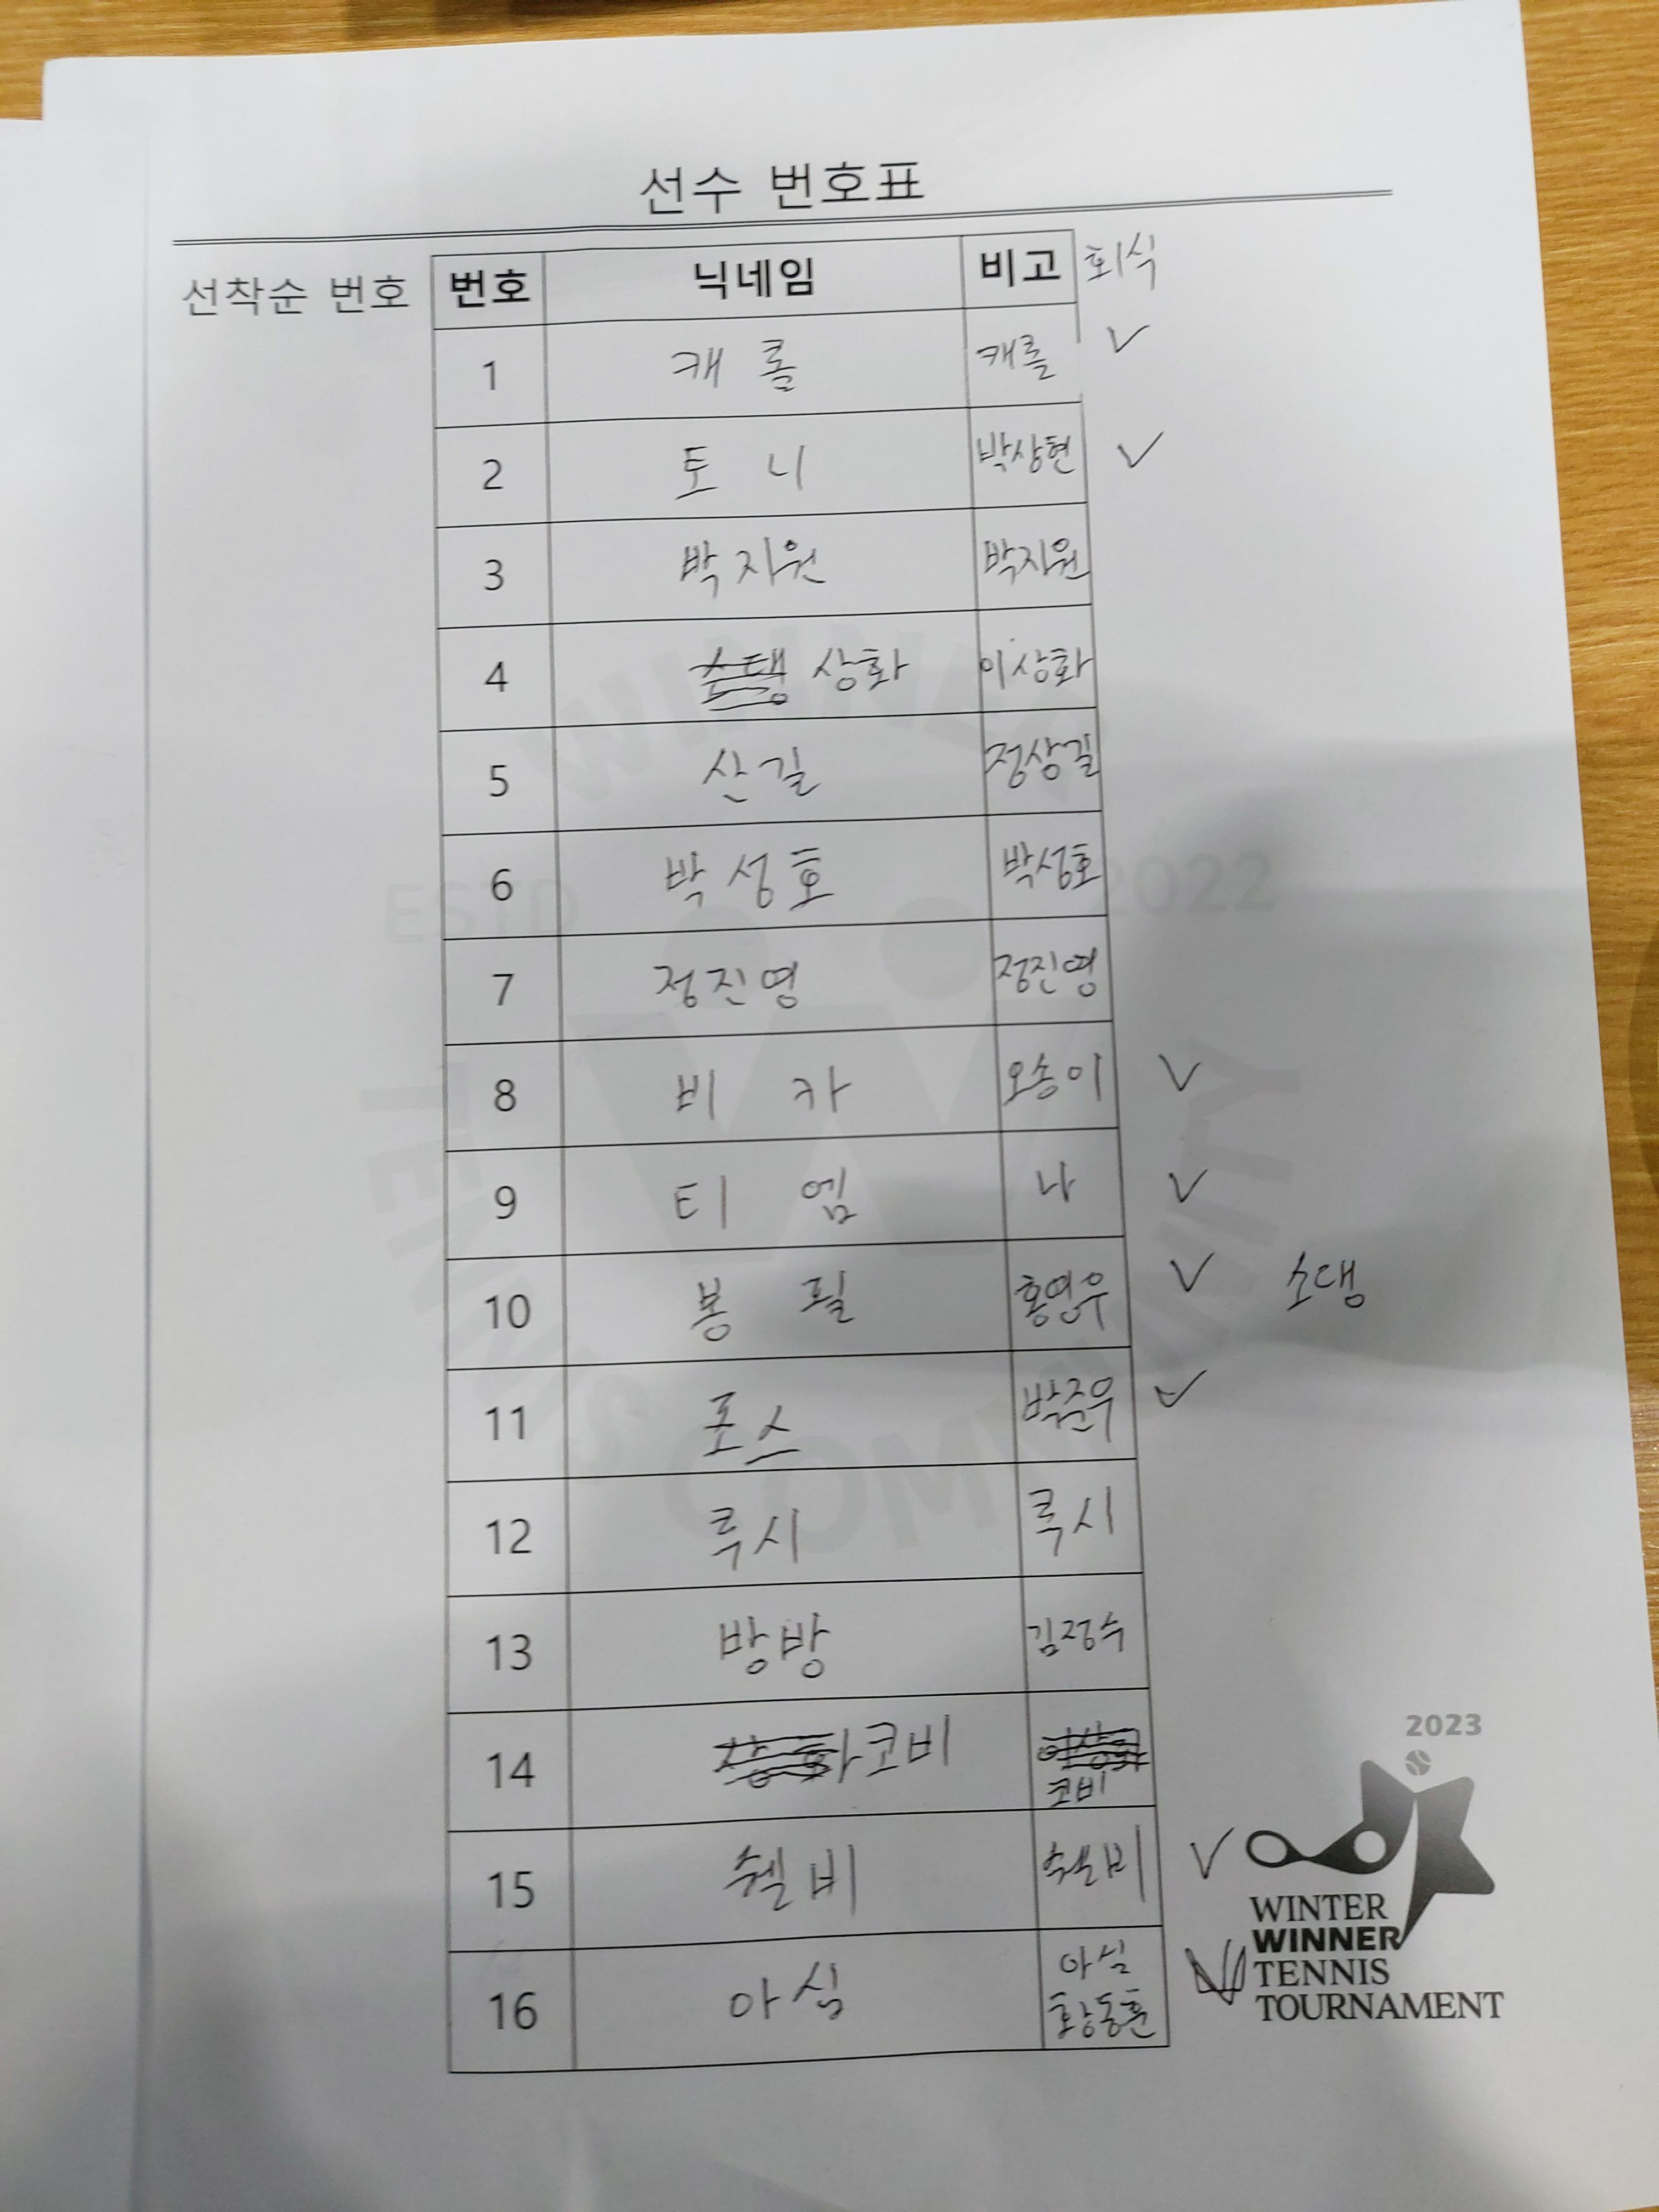 선수 번호표
선착순 번호 번호 닉네임 비고 회식
1 캐롤 캐롤 ✓
2 토니 박상현 ✓
3 박지원 박지원
4 상화 이상화
5 산길 정상길
6 박성호 박성호
7 정진영 정진영
8 비카 오송이 ✓
9 티엠 나 ✓
10 봉필 홍영우 ✓ 소댕
11 포스 박준우 ✓
12 루시 루시
13 방방 김정수
14 코비
코비
15 쉘비 ✓
16 아심 아심
황동훈
WINNER
ESTD 2022
TENNIS COMMUNITY
2023
WINTER
WINNER
TENNIS
TOURNAMENT